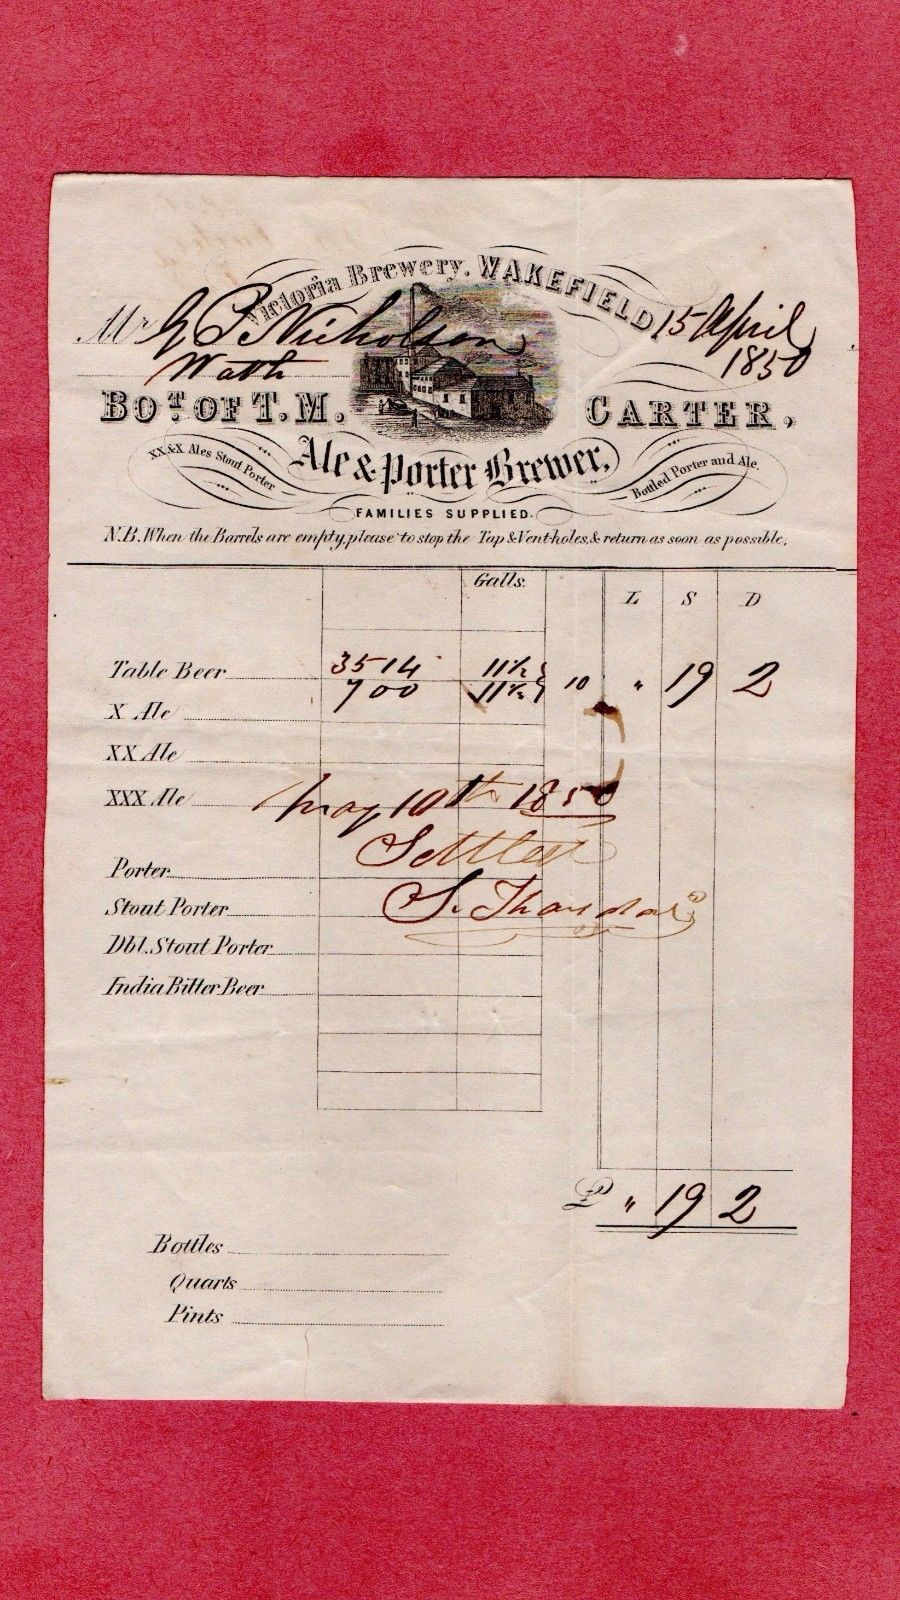 Victoria Brewery. WAKEFIELD 15 April 1850
Mr G P Nicholson
Wath
BOT. OF T. M. CARTER,
XX & X Ales Stout Porter
Ale & Porter Brewer,
Bottled Porter and Ale.
FAMILIES SUPPLIED.
N.B. When the Barrels are empty, please to stop the Tap & Vent-holes, & return as soon as possible.
Galls. L S D
Table Beer 3514 11½ 10 " 19 2
700 11½
X Ale
XX Ale
XXX Ale
May 10th 1850
Settled
Porter
S.
Stout Porter
Dbl. Stout Porter
India Bitter Beer
£ " 19 2
Bottles
Quarts
Pints